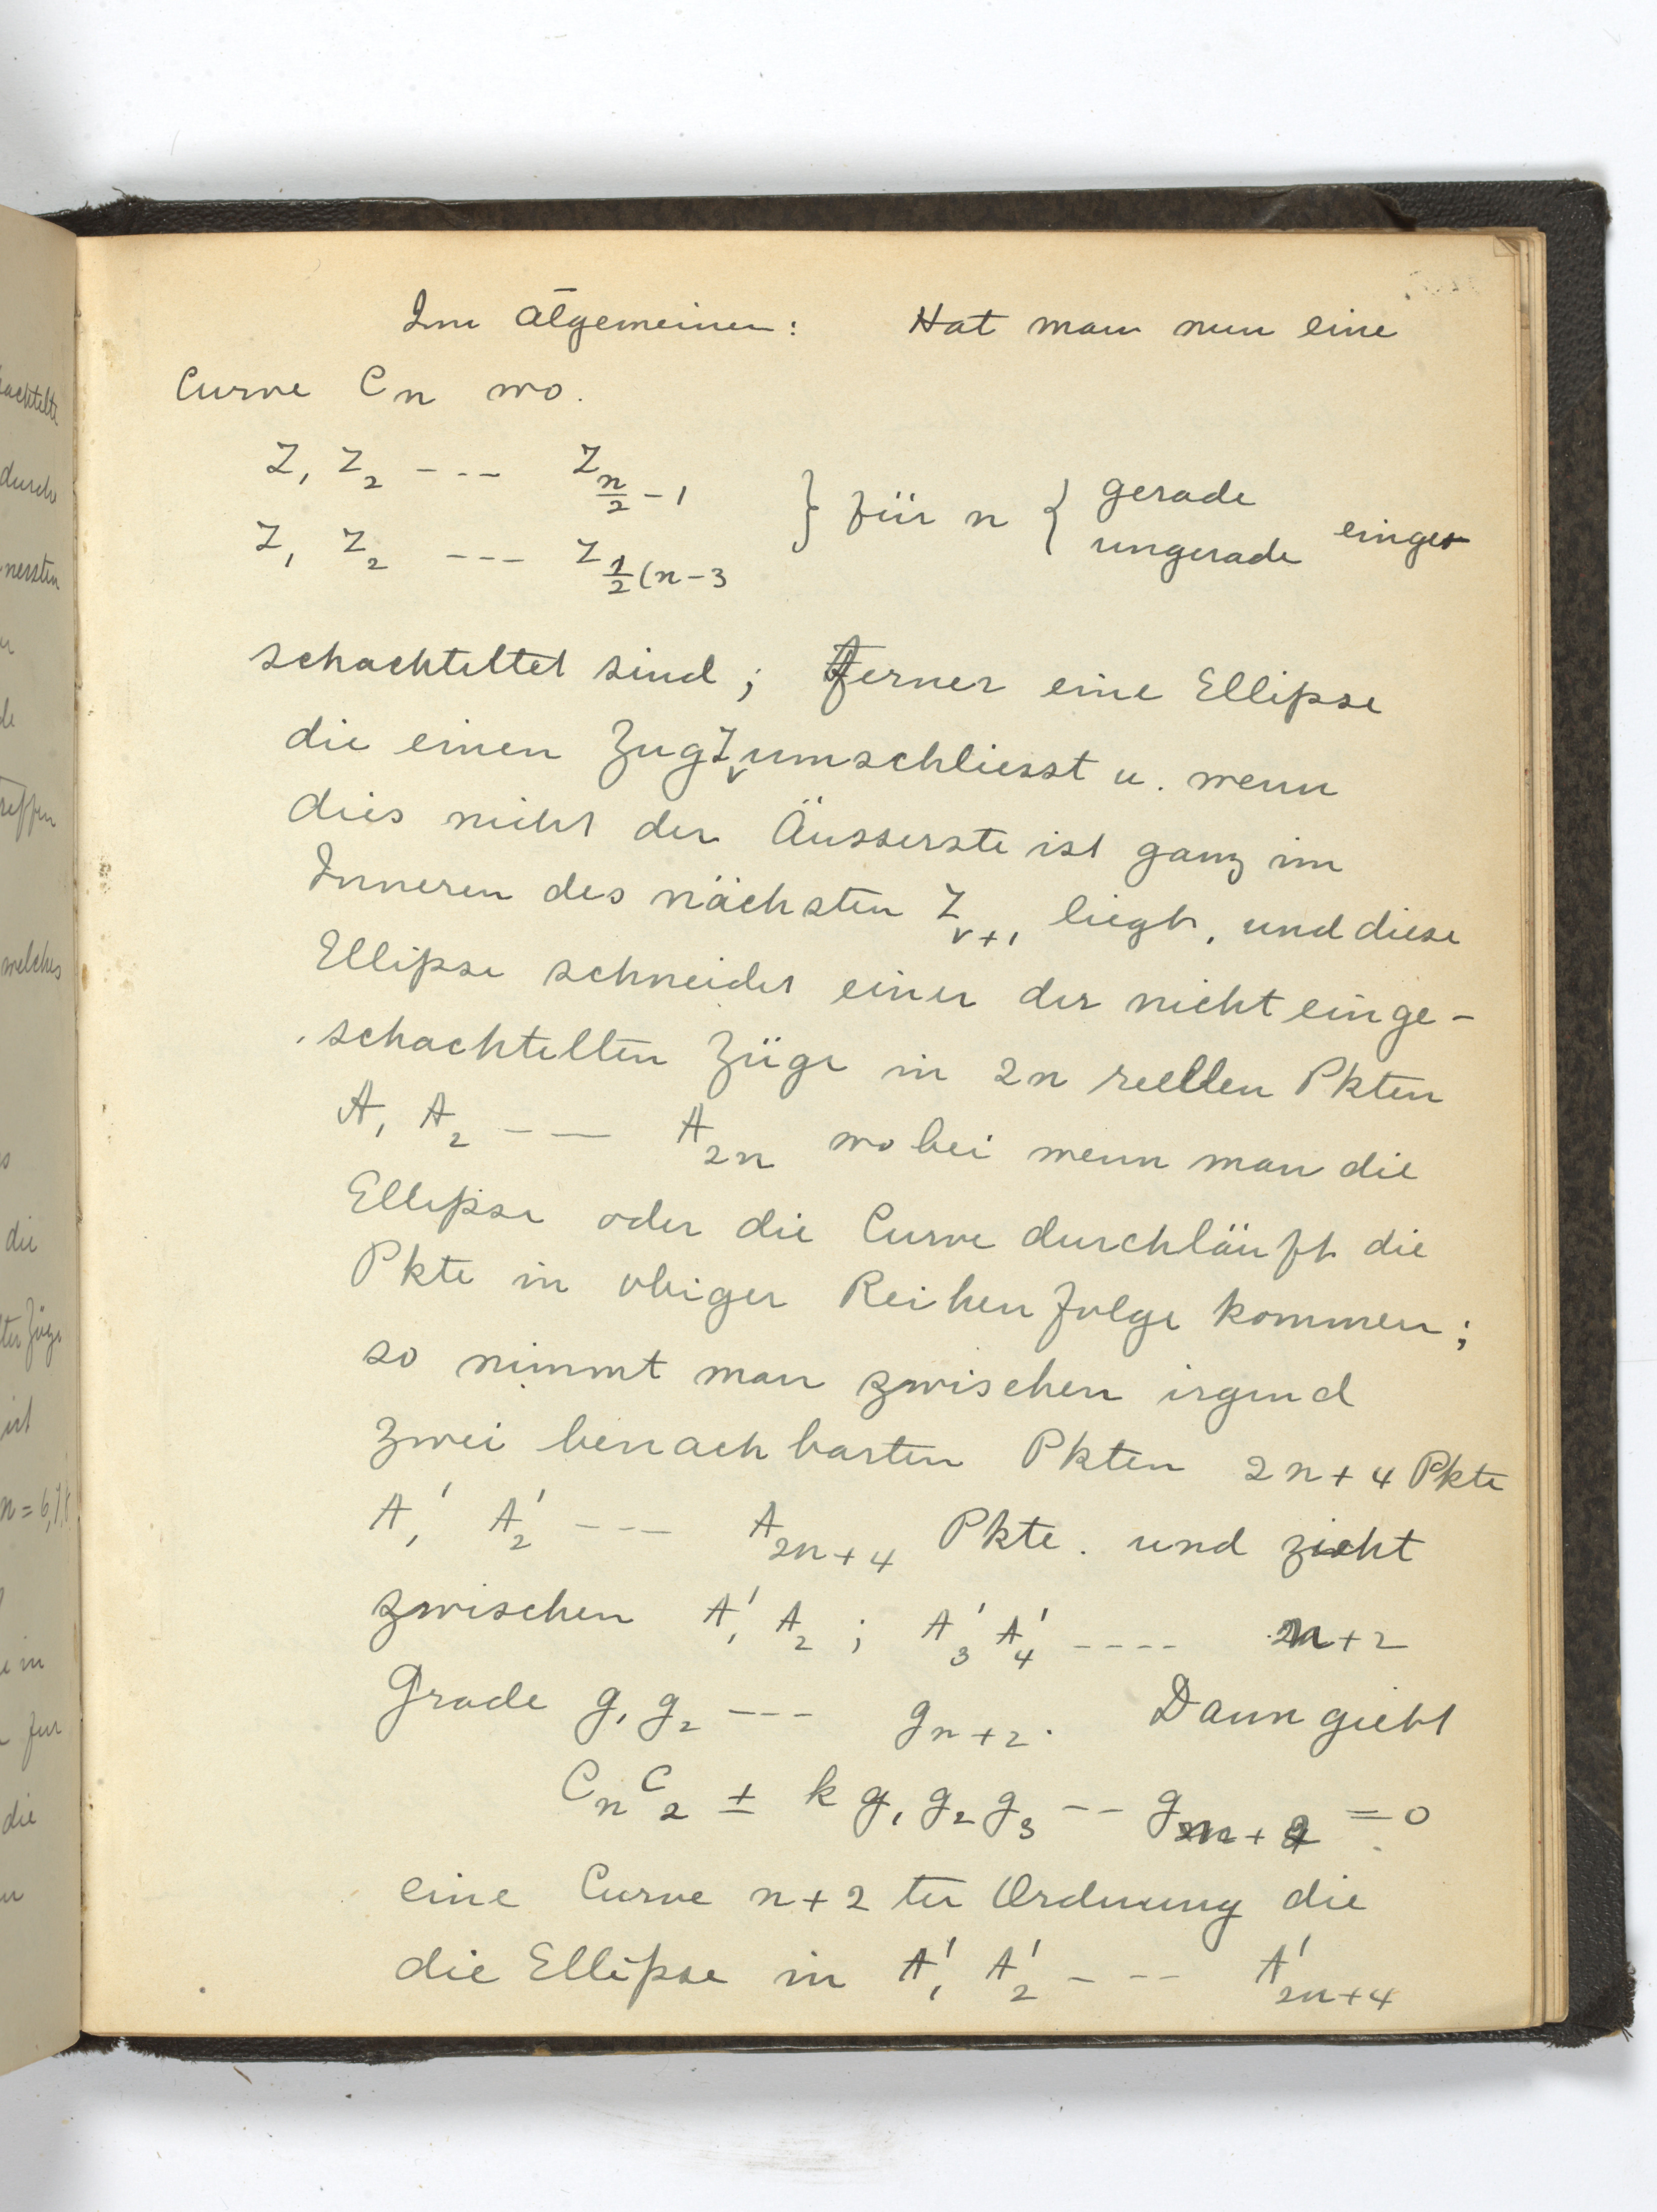 Im Algemeinen: Hat man nun eine
Curve Cₙ wo.
Z₁ Z₂ --- Z_{n/2 - 1}
} für n { gerade
ungerade einge-
Z₁ Z₂ --- Z_{1/2(n-3}
schachteltet sind; ferner eine Ellipse
die einen Zug Z_ν umschliesst u. wenn
dies nicht der Äusserste ist ganz im
Inneren des nächsten Z_{ν+1} liegt, und diese
Ellipse schneidet einer der nicht einge-
schachtelten Züge in 2n reellen Pkten
A₁ A₂ --- A_{2n} wobei wenn man die
Ellipse oder die Curve durchläuft die
Pkte in obiger Reihenfolge kommen;
so nimmt man zwischen irgend
zwei benachbarten Pkten 2n+4 Pkte
A₁' A₂' --- A_{2n+4} Pkte. und zieht
zwischen A₁' A₂ ; A₃' A₄' ---- n+2
Grade g₁ g₂ --- g_{n+2}. Dann giebt
CₙC₂ ± k g₁ g₂ g₃ -- g_{n+2} = 0
eine Curve n+2 ter Ordnung die
die Ellipse in A₁' A₂' --- A'_{2n+4}